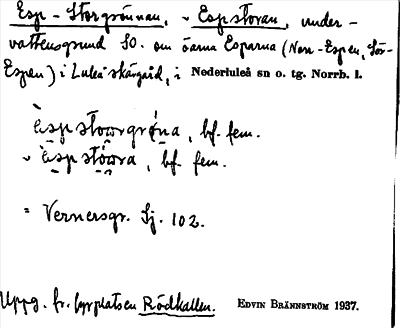 Esp-Storgrönnan, ~ Espstoran, under-
vattensgrund SO. om öarna Esparna (Norr-Espen, Sör-
Espen) i Luleå skärgård, i Nederluleå sn o. tg. Norrb. l.
bf. fem.
~ bf. fem.
= Vernersgr. Sj. 102.
Uppg. fr. fyrplatsen Rödkallen. EDVIN BRÄNNSTRÖM 1937.